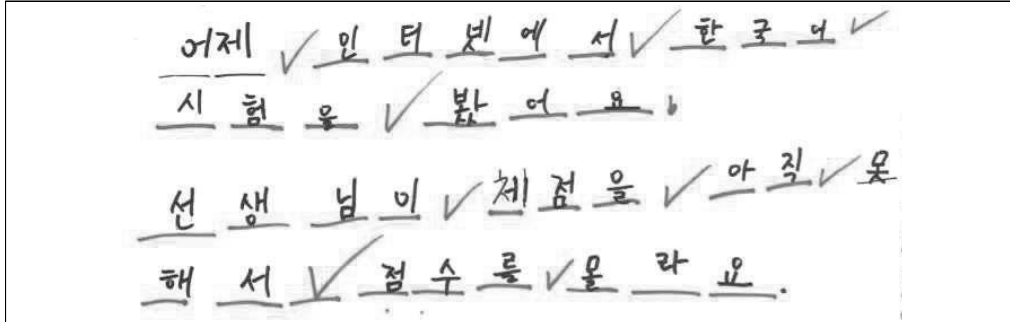 어제 ✓ 인터넷에서 ✓ 한국어 ✓
시험을 ✓ 봤어요.
선생님이 ✓ 체점을 ✓ 아직 ✓ 못
해서 ✓ 점수를 ✓ 몰라요.